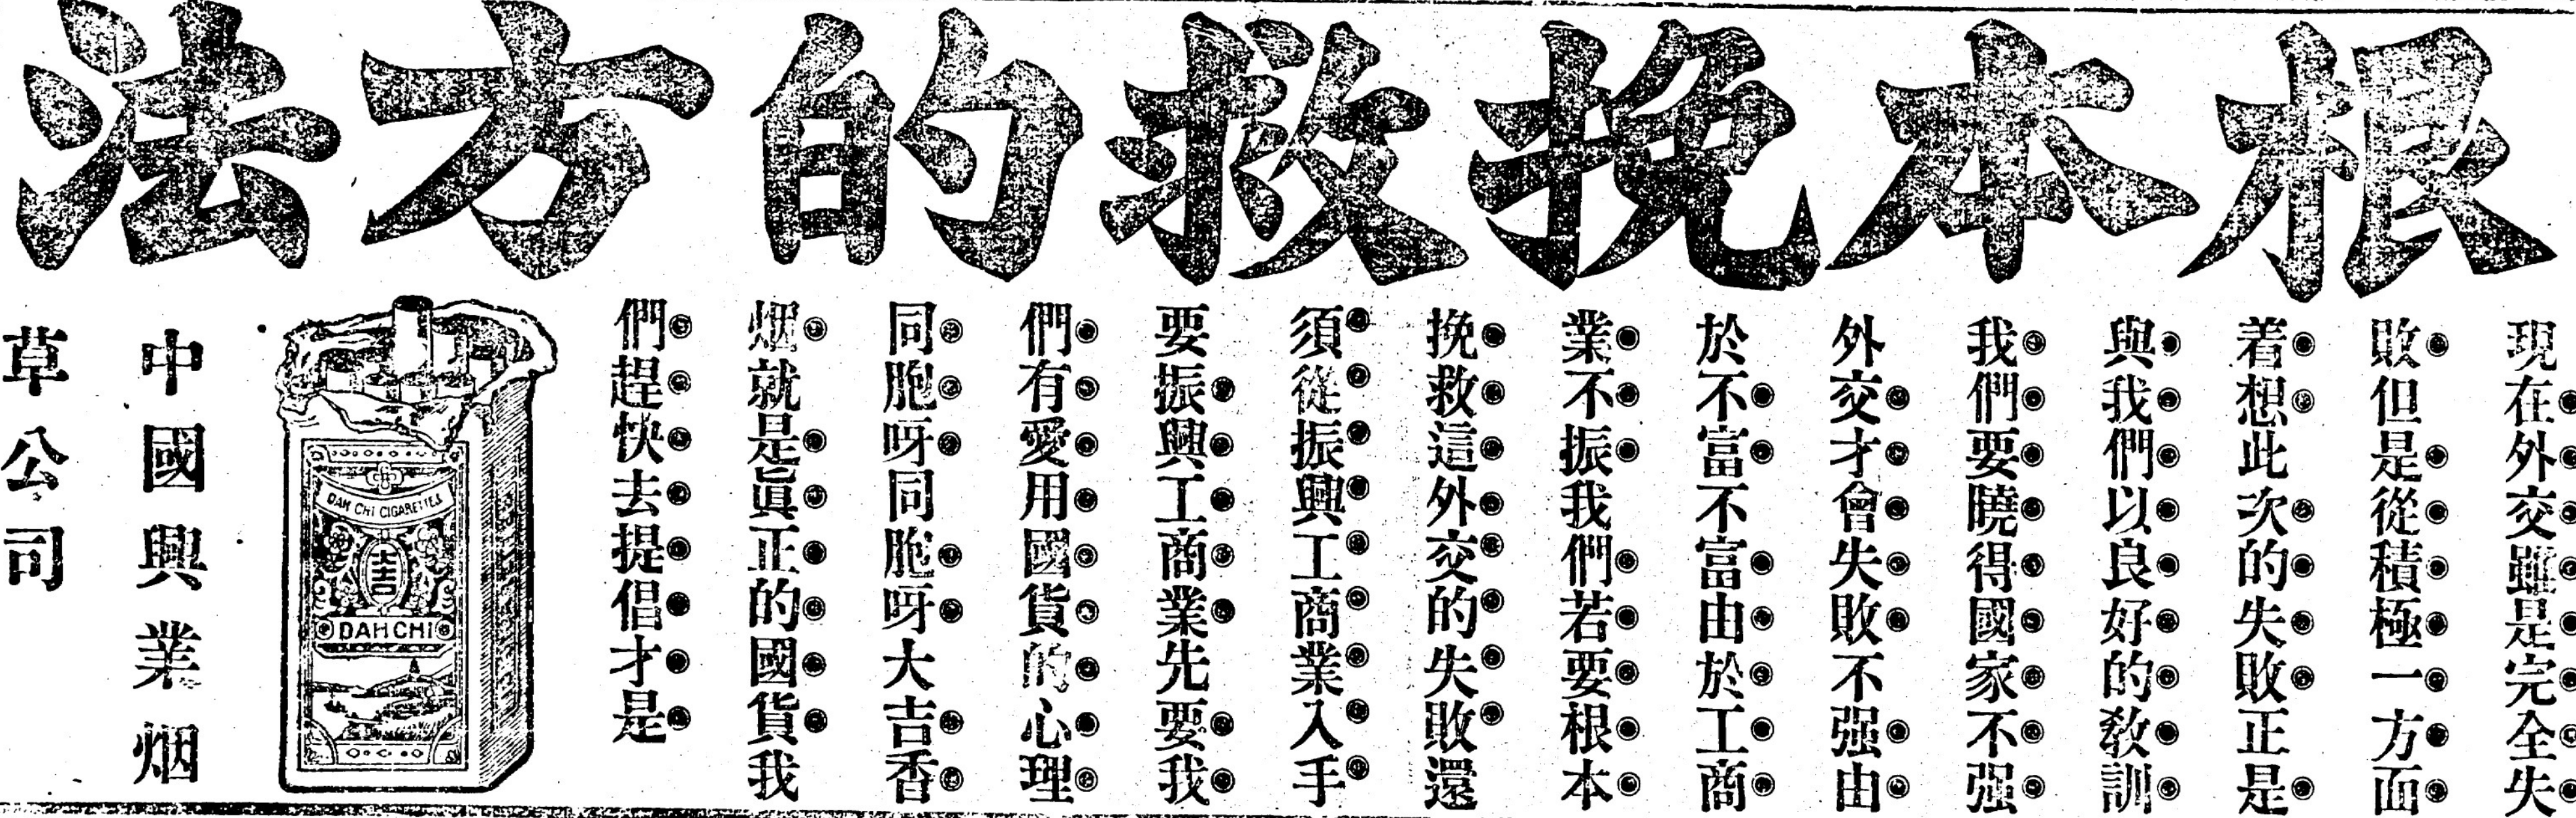 根本挽救的方法
現在外交雖是完全失
敗但是從積極一方面
着想此次的失敗正是
與我們以良好的敎訓
我們要曉得國家不强
外交才會失敗不强由
於不富不富由於工商
業不振我們若要根本
挽救這外交的失敗還
須從振興工商業入手
要振興工商業先要我
們有愛用國貨的心理
同胞呀同胞呀大吉香
烟就是眞正的國貨我
們趕快去提倡才是
DAH CHI CIGARETTES
大吉
DAH CHI
中國興業烟
草公司